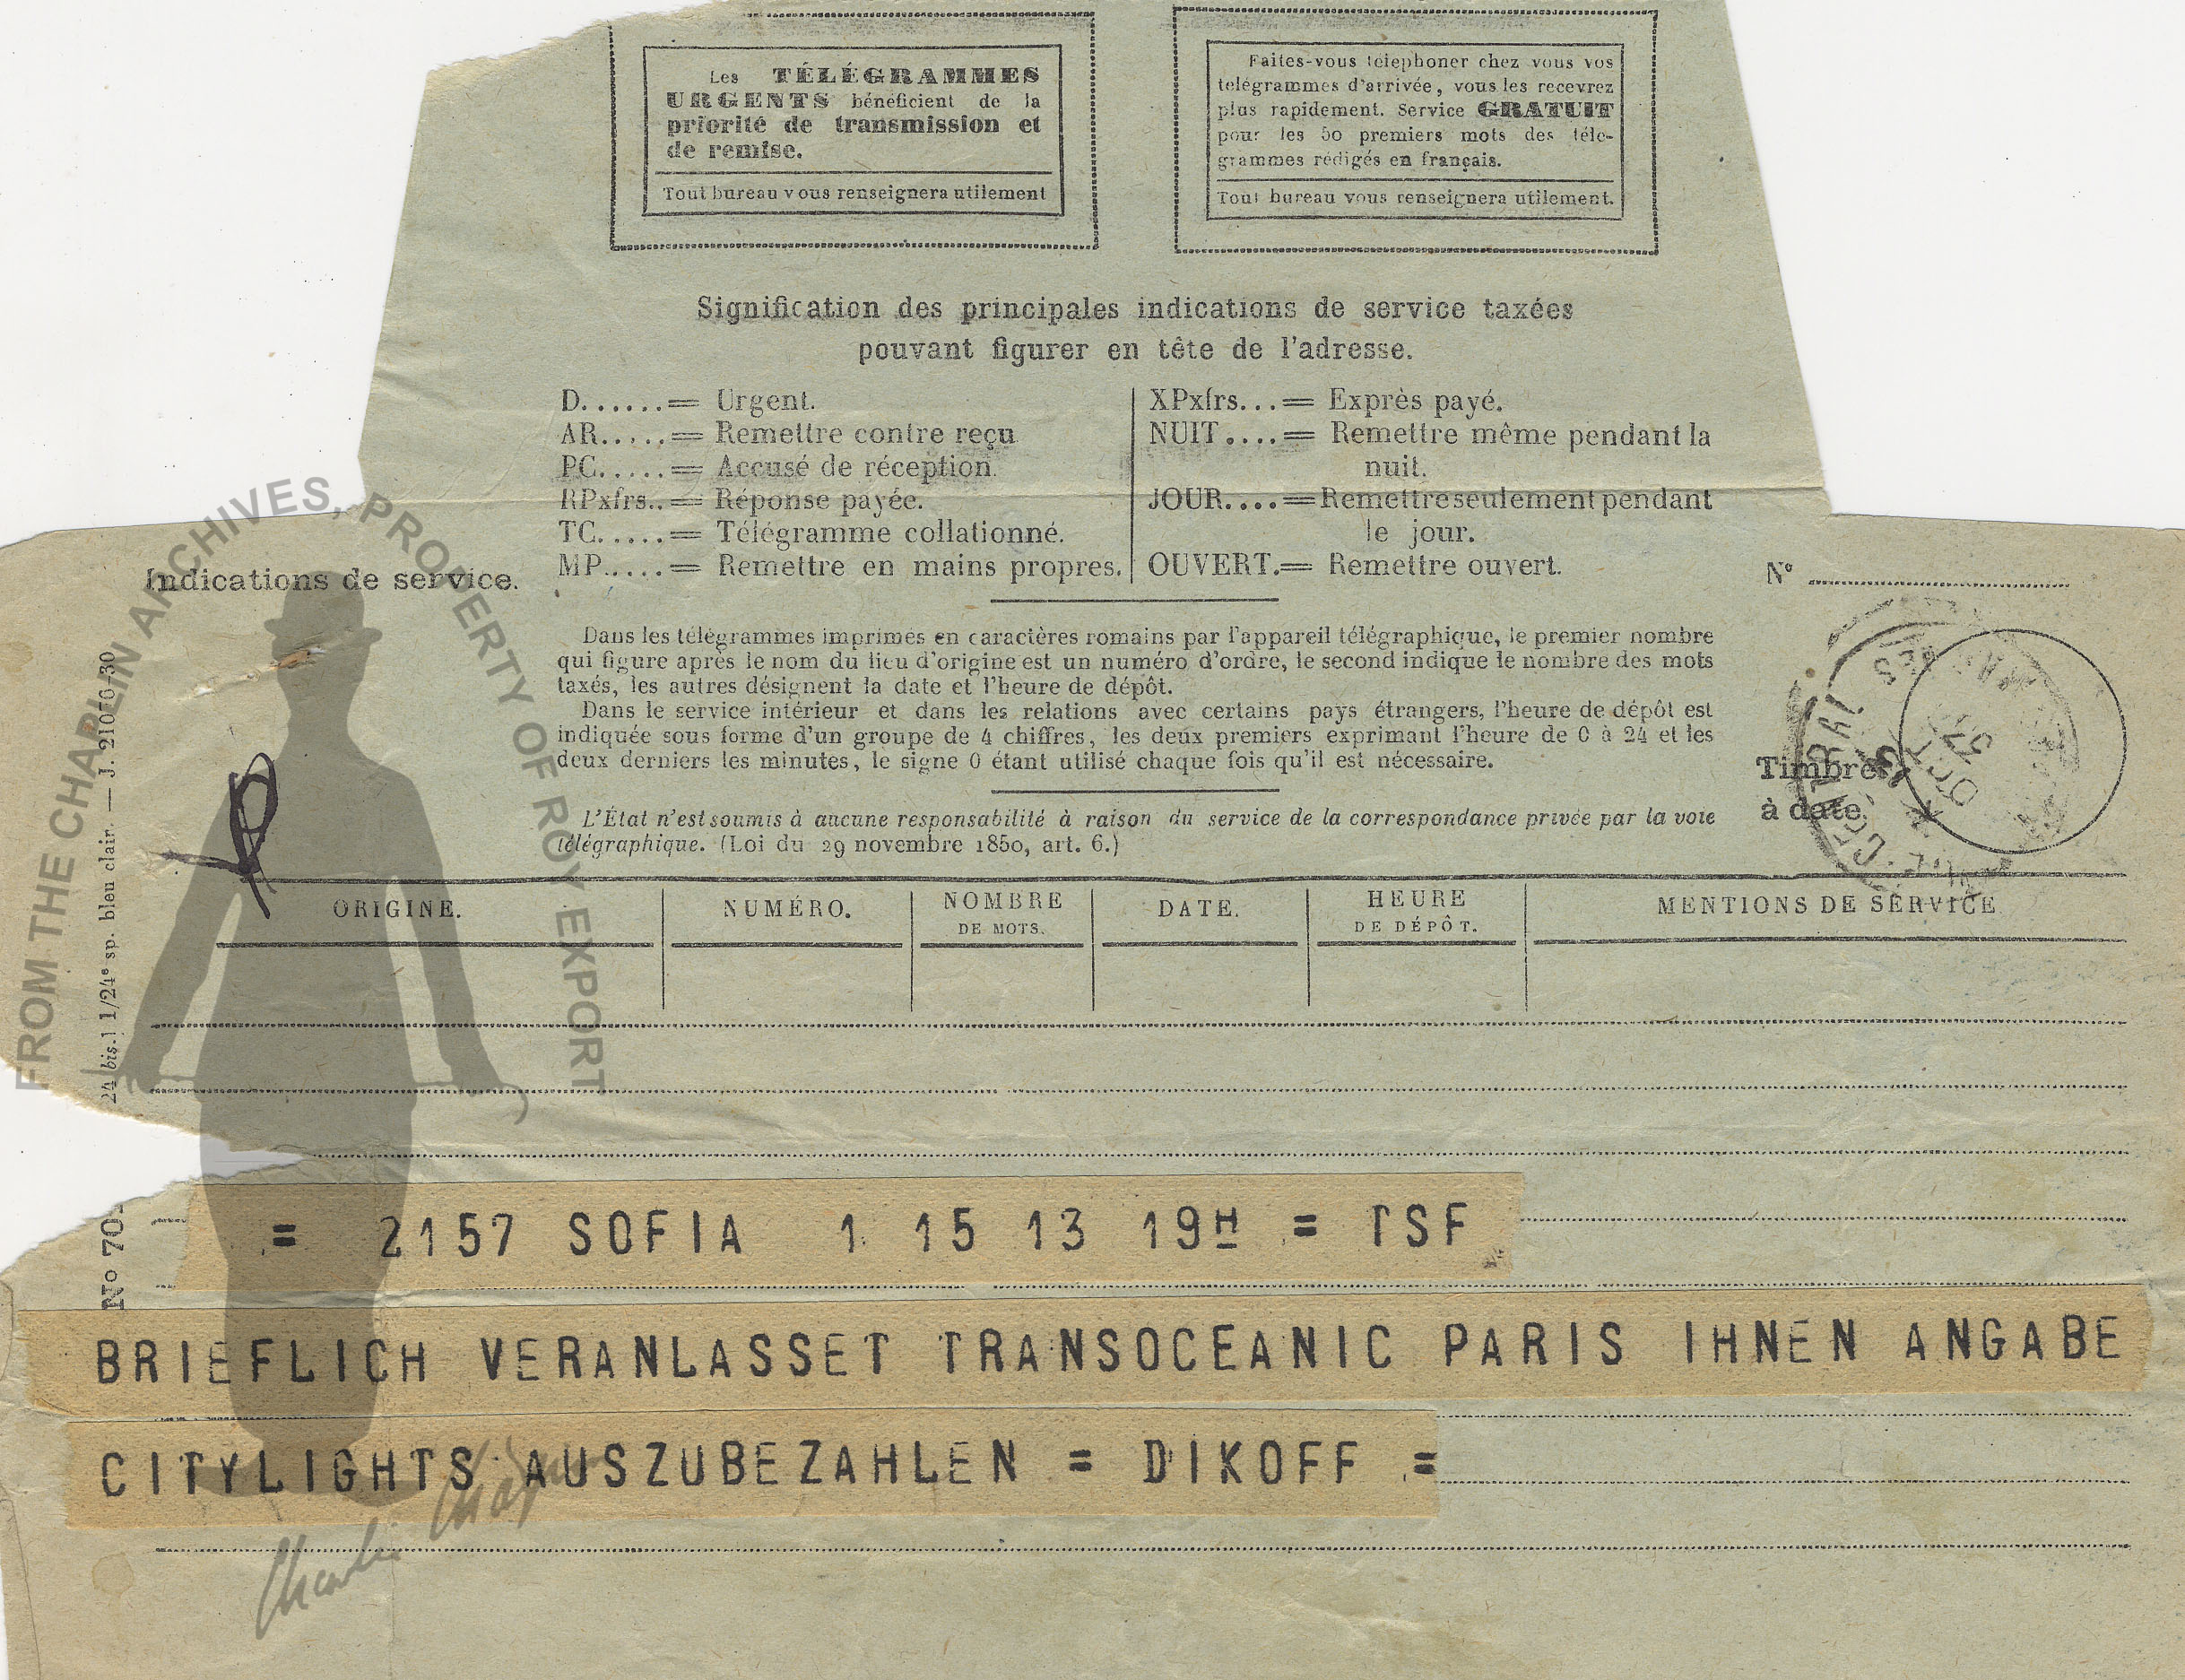 Les TÉLÉGRAMMES
URGENTS bénéficient de la
priorité de transmission et
de remise.
Tout bureau vous renseignera utilement
Faites-vous téléphoner chez vous vos
télégrammes d'arrivée, vous les recevrez
plus rapidement. Service GRATUIT
pour les 50 premiers mots des télé-
grammes rédigés en français.
Tout bureau vous renseignera utilement.
Signification des principales indications de service taxées
pouvant figurer en tête de l'adresse.
D......= Urgent.
AR.....= Remettre contre reçu
PC.....= Accusé de réception.
RPxfrs..= Réponse payée.
TC.....= Télégramme collationné.
MP.....= Remettre en mains propres.
XPxfrs...= Exprès payé.
NUIT....= Remettre même pendant la
nuit.
JOUR....= Remettre seulement pendant
le jour.
OUVERT.= Remettre ouvert.
Indications de service.
N°
Dans les télégrammes imprimés en caractères romains par l'appareil télégraphique, le premier nombre
qui figure après le nom du lieu d'origine est un numéro d'ordre, le second indique le nombre des mots
taxés, les autres désignent la date et l'heure de dépôt.
Dans le service intérieur et dans les relations avec certains pays étrangers, l'heure de dépôt est
indiquée sous forme d'un groupe de 4 chiffres, les deux premiers exprimant l'heure de 0 à 24 et les
deux derniers les minutes, le signe 0 étant utilisé chaque fois qu'il est nécessaire.
Timbre
à date
L'État n'est soumis à aucune responsabilité à raison du service de la correspondance privée par la voie
télégraphique. (Loi du 29 novembre 1850, art. 6.)
ORIGINE. NUMÉRO. NOMBRE DE MOTS. DATE. HEURE DE DÉPÔT. MENTIONS DE SERVICE
= 2157 SOFIA 1 15 13 19H = TSF
BRIEFLICH VERANLASSET TRANSOCEANIC PARIS IHNEN ANGABE
CITYLIGHTS AUSZUBEZAHLEN = DIKOFF =
No 70
24 bis.] 1/24e sp. bleu clair. — J. 21070-30
FROM THE CHAPLIN ARCHIVES, PROPERTY OF ROY EXPORT
Charlie Chaplin